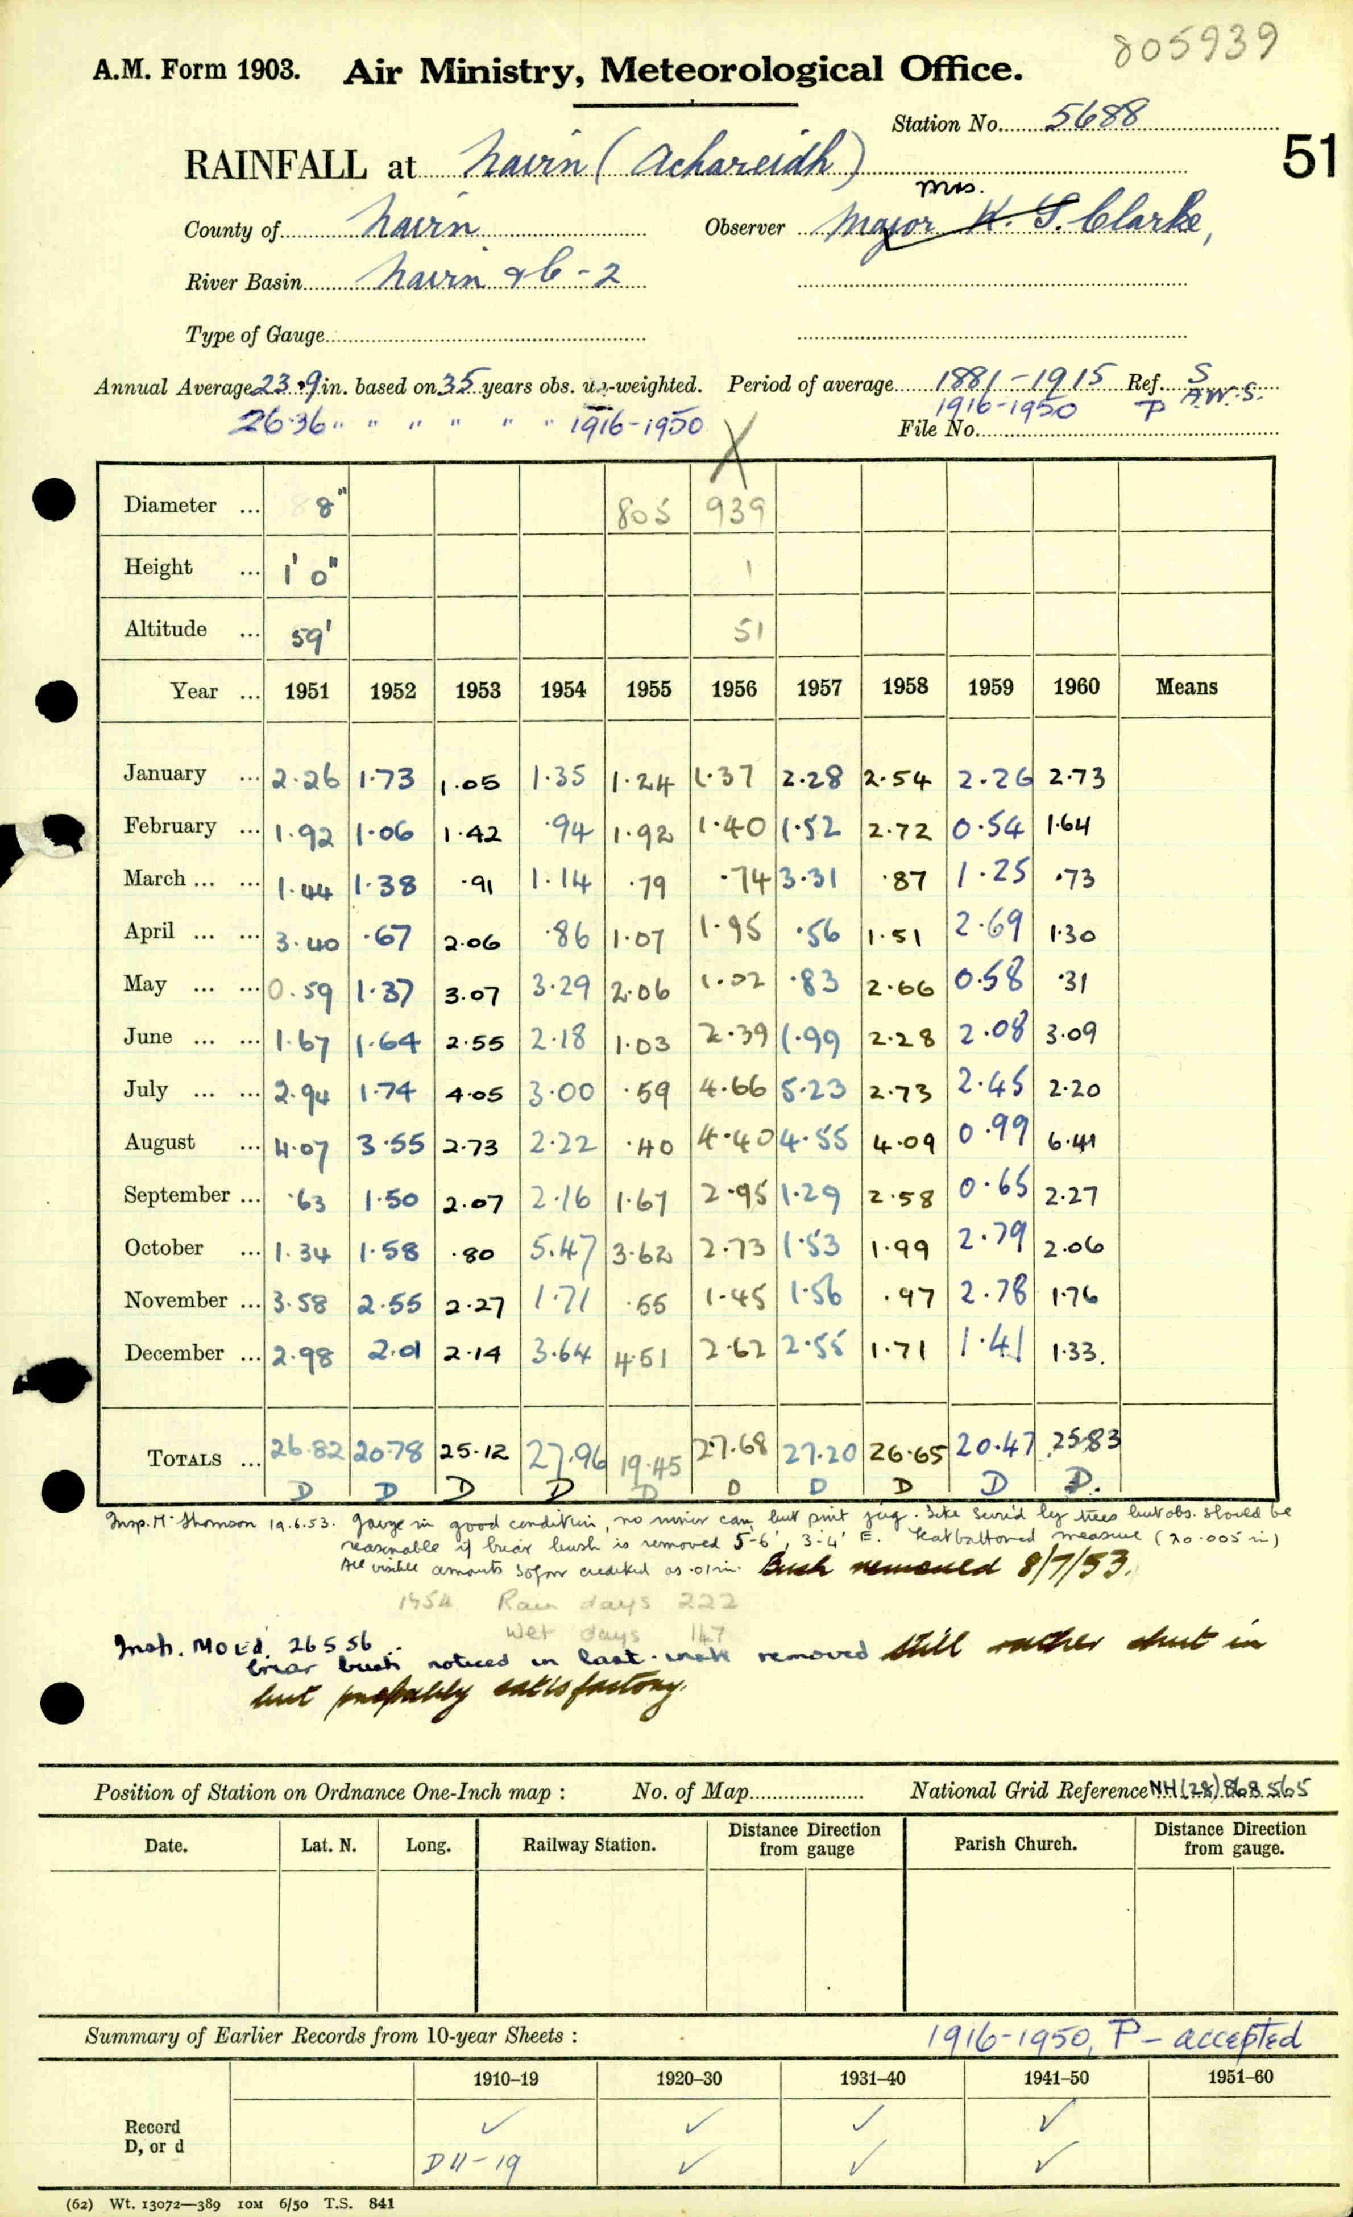 805939
A.M. Form 1903. Air Ministry, Meteorological Office.
Station No. 5688
51
RAINFALL at Nairn (Achareidh)
Mrs.
County of Nairn Observer Major K. G. Clarke,
River Basin Nairn & C-2
Type of Gauge
Annual Average 23.9 in. based on 35 years obs. un-weighted. Period of average 1881-1915 Ref. S
26.36 " " " " " " 1916-1950 1916-1950 P A.W.S.
File No.
X
Diameter ... 8" 805 939
Height ... 1' 0" 1
Altitude ... 59' 51
Year ... 1951 1952 1953 1954 1955 1956 1957 1958 1959 1960 Means
January ... 2.26 1.73 1.05 1.35 1.24 1.37 2.28 2.54 2.26 2.73
February ... 1.92 1.06 1.42 .94 1.92 1.40 1.52 2.72 0.54 1.64
March ... ... 1.44 1.38 .91 1.14 .79 .74 3.31 .87 1.25 .73
April ... ... 3.40 .67 2.06 .86 1.07 1.95 .56 1.51 2.69 1.30
May ... ... 0.59 1.37 3.07 3.29 2.06 1.02 .83 2.66 0.58 .31
June ... ... 1.67 1.64 2.55 2.18 1.03 2.39 1.99 2.28 2.08 3.09
July ... ... 2.94 1.74 4.05 3.00 .59 4.66 5.23 2.73 2.45 2.20
August ... 4.07 3.55 2.73 2.22 .40 4.40 4.55 4.09 0.99 6.41
September ... .63 1.50 2.07 2.16 1.67 2.95 1.29 2.58 0.65 2.27
October ... 1.34 1.58 .80 5.47 3.62 2.73 1.53 1.99 2.79 2.06
November ... 3.58 2.55 2.27 1.71 .55 1.45 1.56 .97 2.78 1.76
December ... 2.98 2.01 2.14 3.64 4.51 2.62 2.55 1.71 1.41 1.33.
TOTALS ... 26.82 20.78 25.12 27.96 19.45 27.68 27.20 26.65 20.47 25.83
D D D D D D D D D D.
Insp. Mr Thomson 19.6.53. Gauge in good condition, no inner can, but pint jug. Site surr'd by trees but obs. should be
reasonable if briar bush is removed 5-6', 3-4' E. Flat bottomed measure (to .005 in)
All visible amounts so far credited as .01 in. Bush removed 8/7/53.
1954 Rain days 222
Wet days 147
Insp. 26 5 56
briar bush noticed in last removed still rather shut in
but probably satisfactory.
Position of Station on Ordnance One-Inch map : No. of Map National Grid Reference NH (28) 868 565
Date. Lat. N. Long. Railway Station. Distance Direction from gauge Parish Church. Distance Direction from gauge.
Summary of Earlier Records from 10-year Sheets : 1916-1950, P - accepted
1910–19 1920–30 1931–40 1941–50 1951–60
Record ✓ ✓ ✓ ✓
D, or d D 11-19 ✓ ✓ ✓
(62) Wt. 13072—389 10M 6/50 T.S. 841